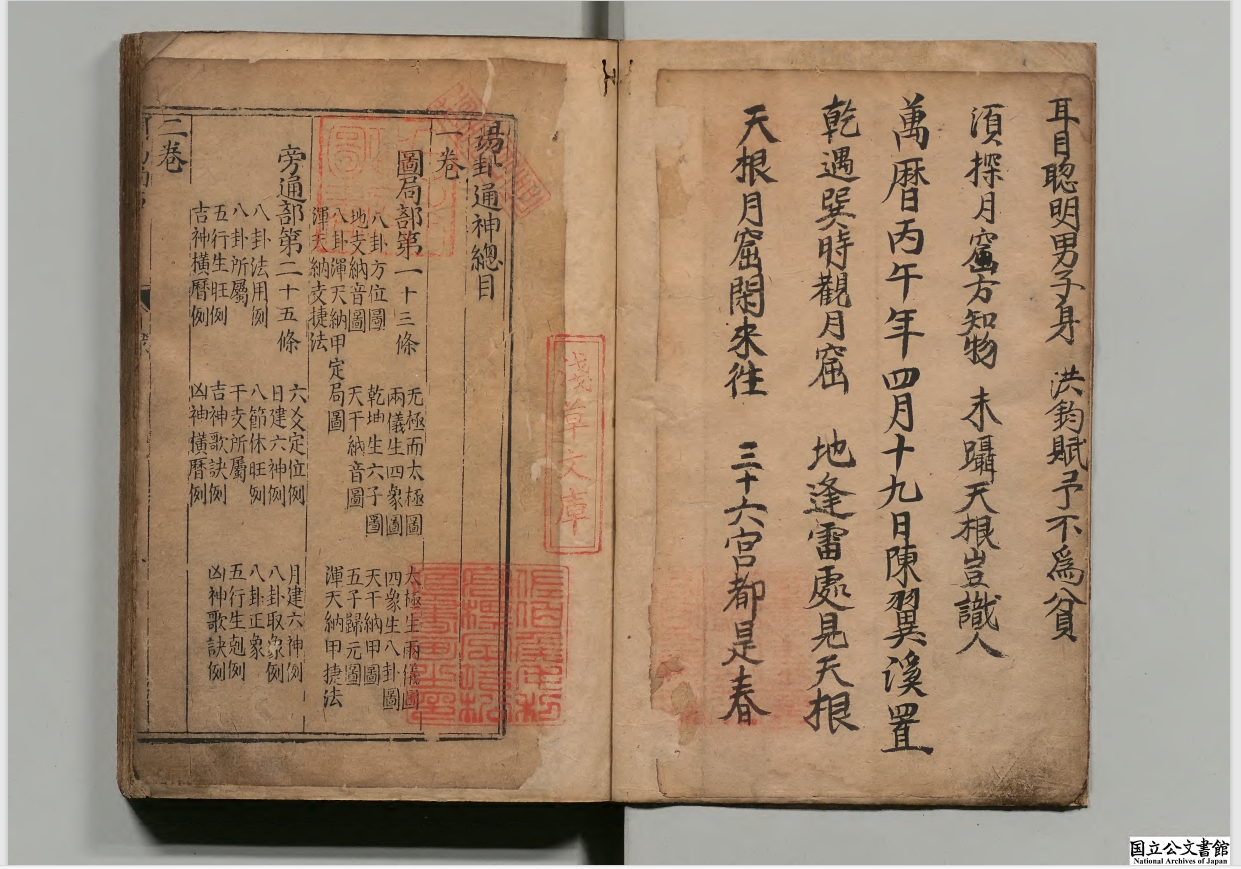 耳目聰明男子身 洪鈞賦予不為貧
湏探月窟方知物 未躡天根豈識人
萬暦丙午年四月十九日陳翼溪置
乾遇巽時觀月窟 地逢雷處見天根
天根月窟閑來往 三十六宮都是春
易卦通神總目
一卷
圖局部第一十三條
无極而太極圖 太極生兩儀圖
兩儀生四象圖 四象生八卦圖
八卦方位圖 乾坤生六子圖 天干納甲圖
地支納音圖 天干納音圖 五子歸元圖
八卦渾天納甲定局圖 渾天納甲捷法
渾天納支捷法
旁通部第二十五條
六爻定位例 月建六神例
八卦法用例 日建六神例 八卦取象例
八卦所屬 八節休旺例 八卦正象
五行生旺例 干支所屬 五行生剋例
吉神橫曆例 吉神歌訣例 凶神歌訣例
凶神橫曆例
二卷
淺草文庫
国立公文書館
National Archives of Japan